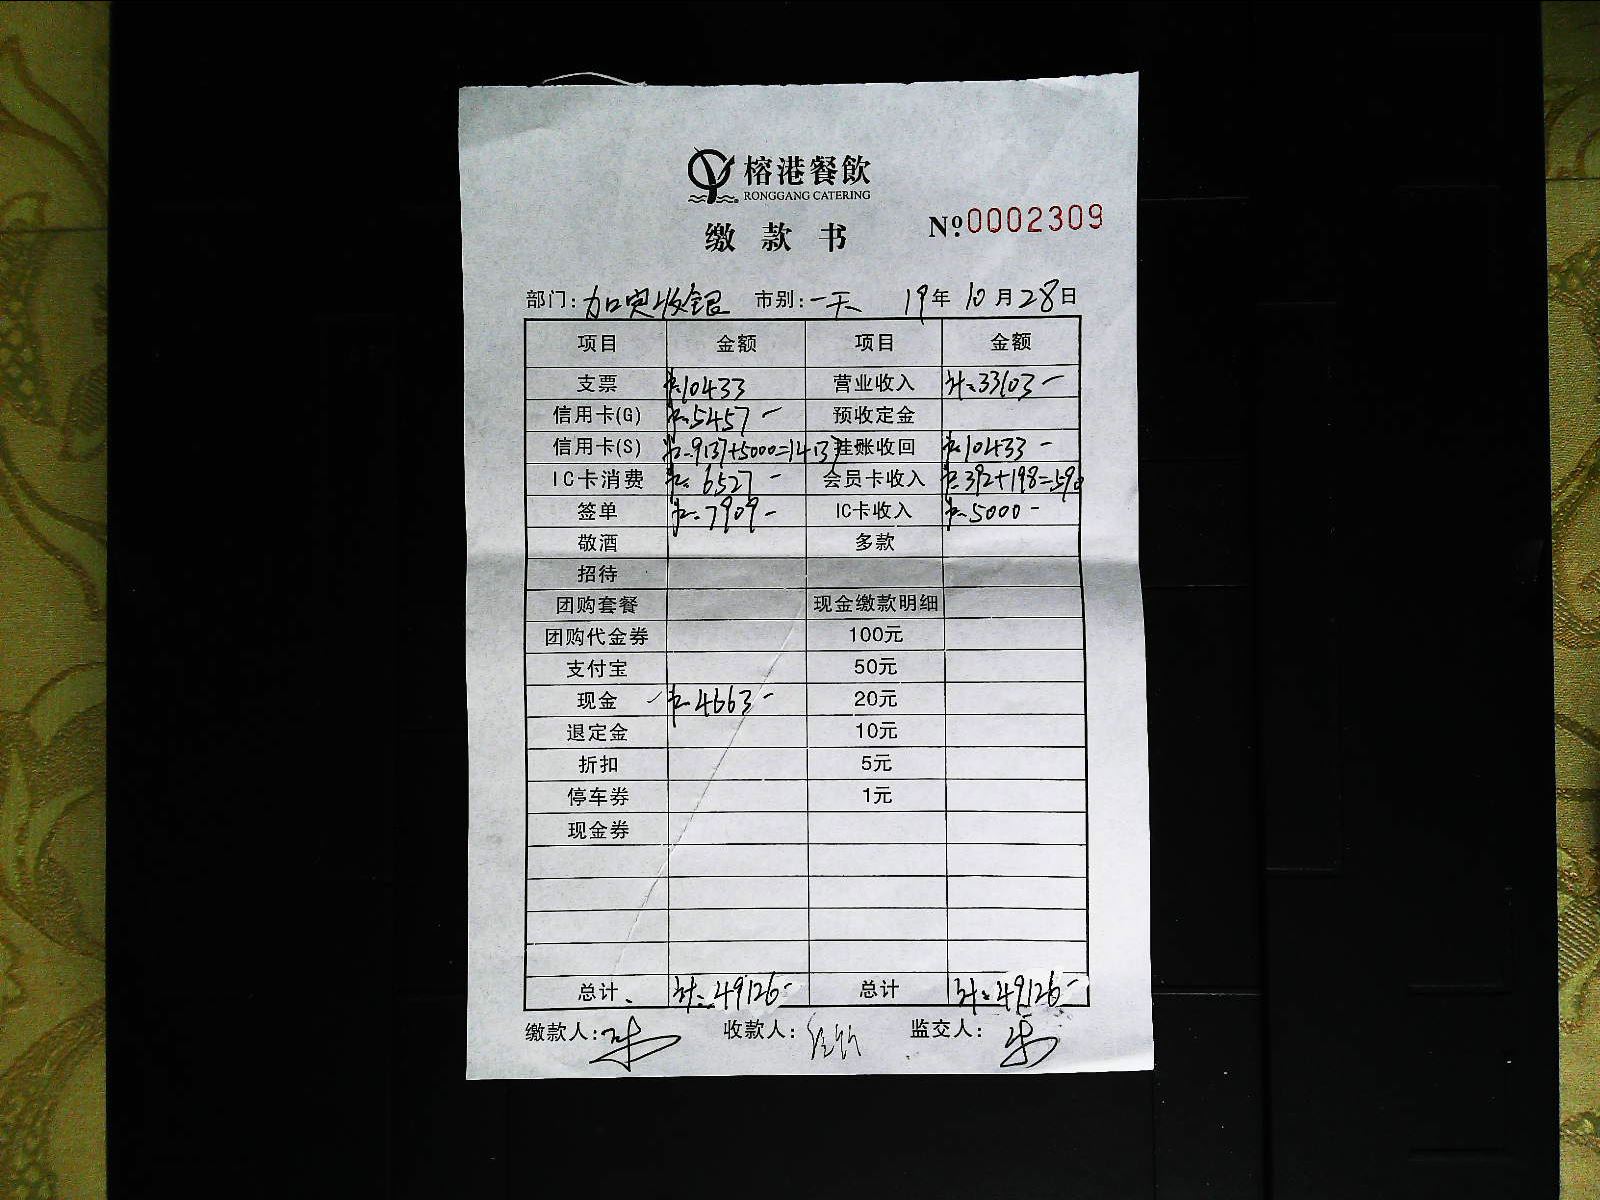 榕港餐飲
RONGGANG CATERING
缴款书
№0002309
部门:加宾收银 市别:一天 19年10月28日
项目 金额 项目 金额
支票 计:10433 营业收入 计:33103-
信用卡(G) 计:5457- 预收定金
信用卡(S) 计:9137+5000=14137 挂账收回 计:10433-
IC卡消费 计:6527- 会员卡收入 计:392+198=590
签单 计:7909- IC卡收入 计:5000-
敬酒 多款
招待
团购套餐 现金缴款明细
团购代金券 100元
支付宝 50元
现金 计:4663- 20元
退定金 10元
折扣 5元
停车券 1元
现金券
总计 计:49126- 总计 计:49126-
缴款人: 收款人: 监交人: